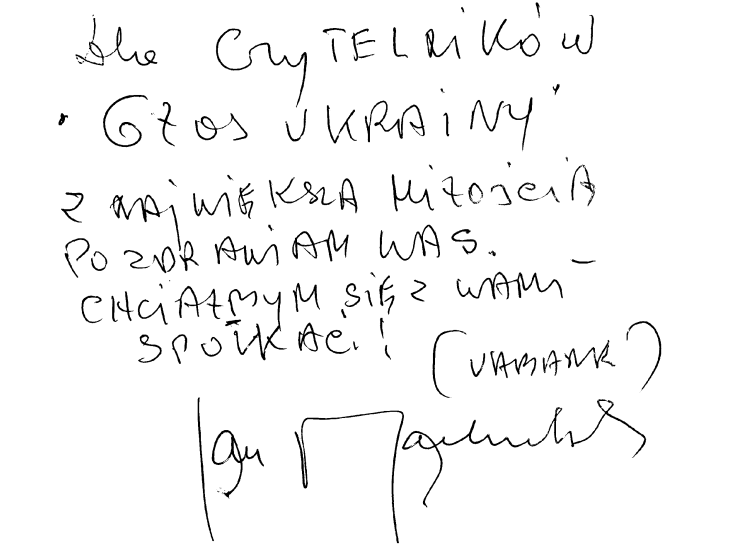 Dla CzyTELNiKÓW
"GŁOS UKRAiNY"
Z NAjWiĘKSZĄ MiŁOŚCiĄ
POZDRAWiAM WAS.
CHCiAŁBYM SiĘ Z WAMi
SPOTKAĆ!
(VABANK)
Jan Machulski